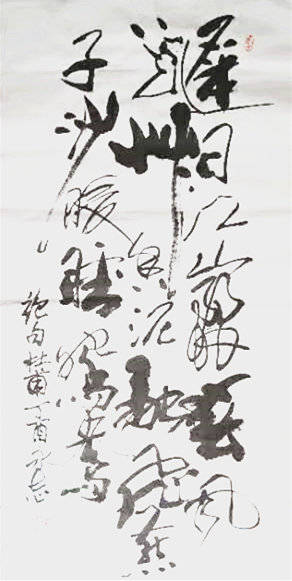 遲日江山麗春風
花艸香泥融飛燕
子沙暖睡鴛鴦
絕句杜甫丁酉